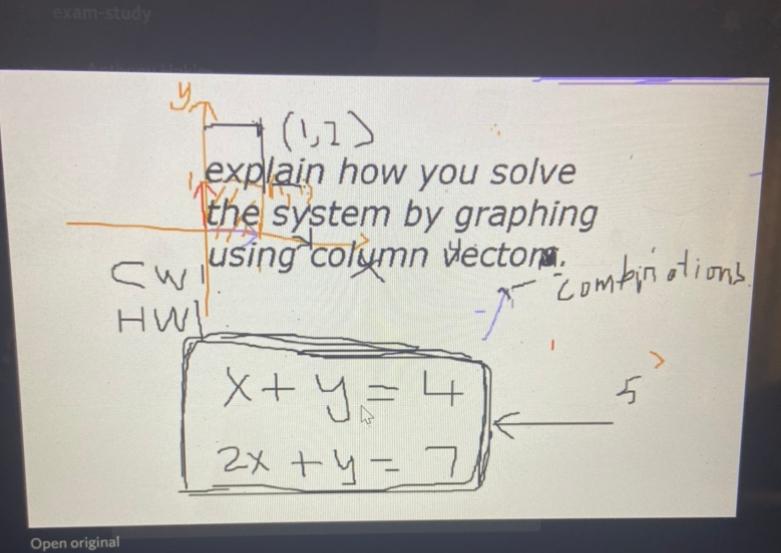 exam-study
y
(1,2)
explain how you solve
the system by graphing
using column vectors.
x
CW
HW
combinations
x + y = 4
5
2x + y = 7
Open original